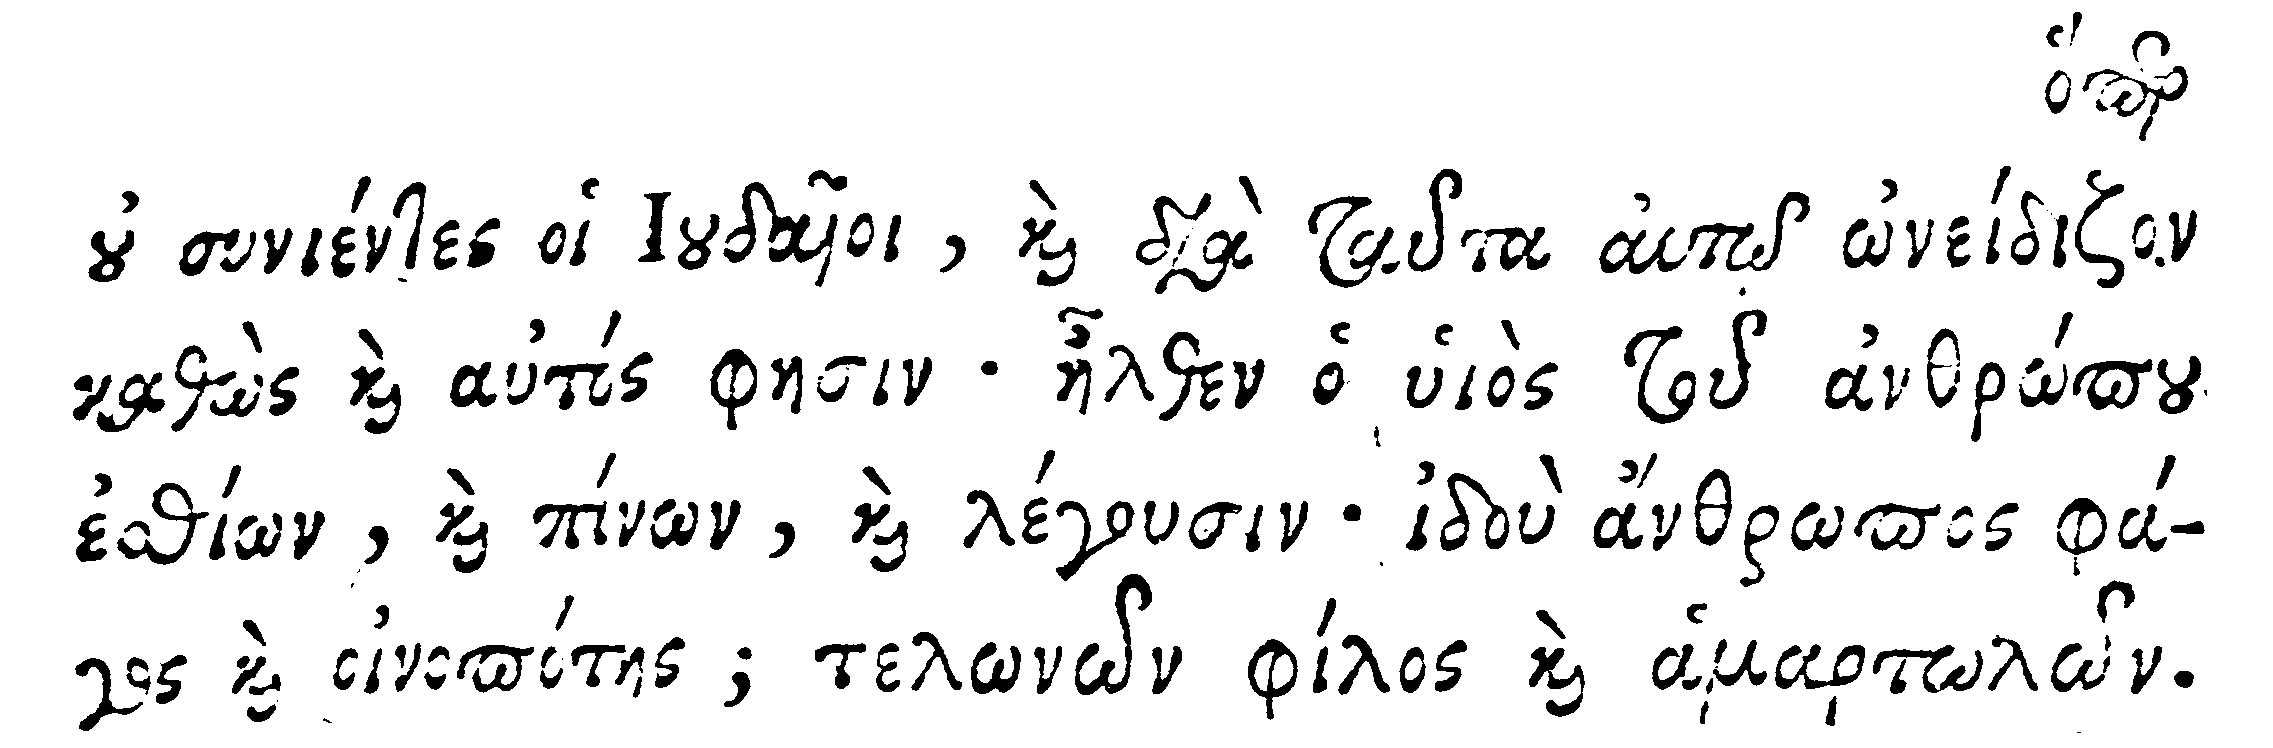 ὅπερ
οὐ συνιέντες οἱ Ἰουδαῖοι, καὶ διὰ ταῦτα αὐτοῦ ὠνείδιζον
καθὼς καὶ αὐτός φησιν· ἦλθεν ὁ υἱὸς τοῦ ἀνθρώπου
ἐσθίων, καὶ πίνων, καὶ λέγουσιν· ἰδοὺ ἄνθρωπος φά-
γος καὶ οἰνοπότης; τελωνῶν φίλος καὶ ἁμαρτωλῶν.